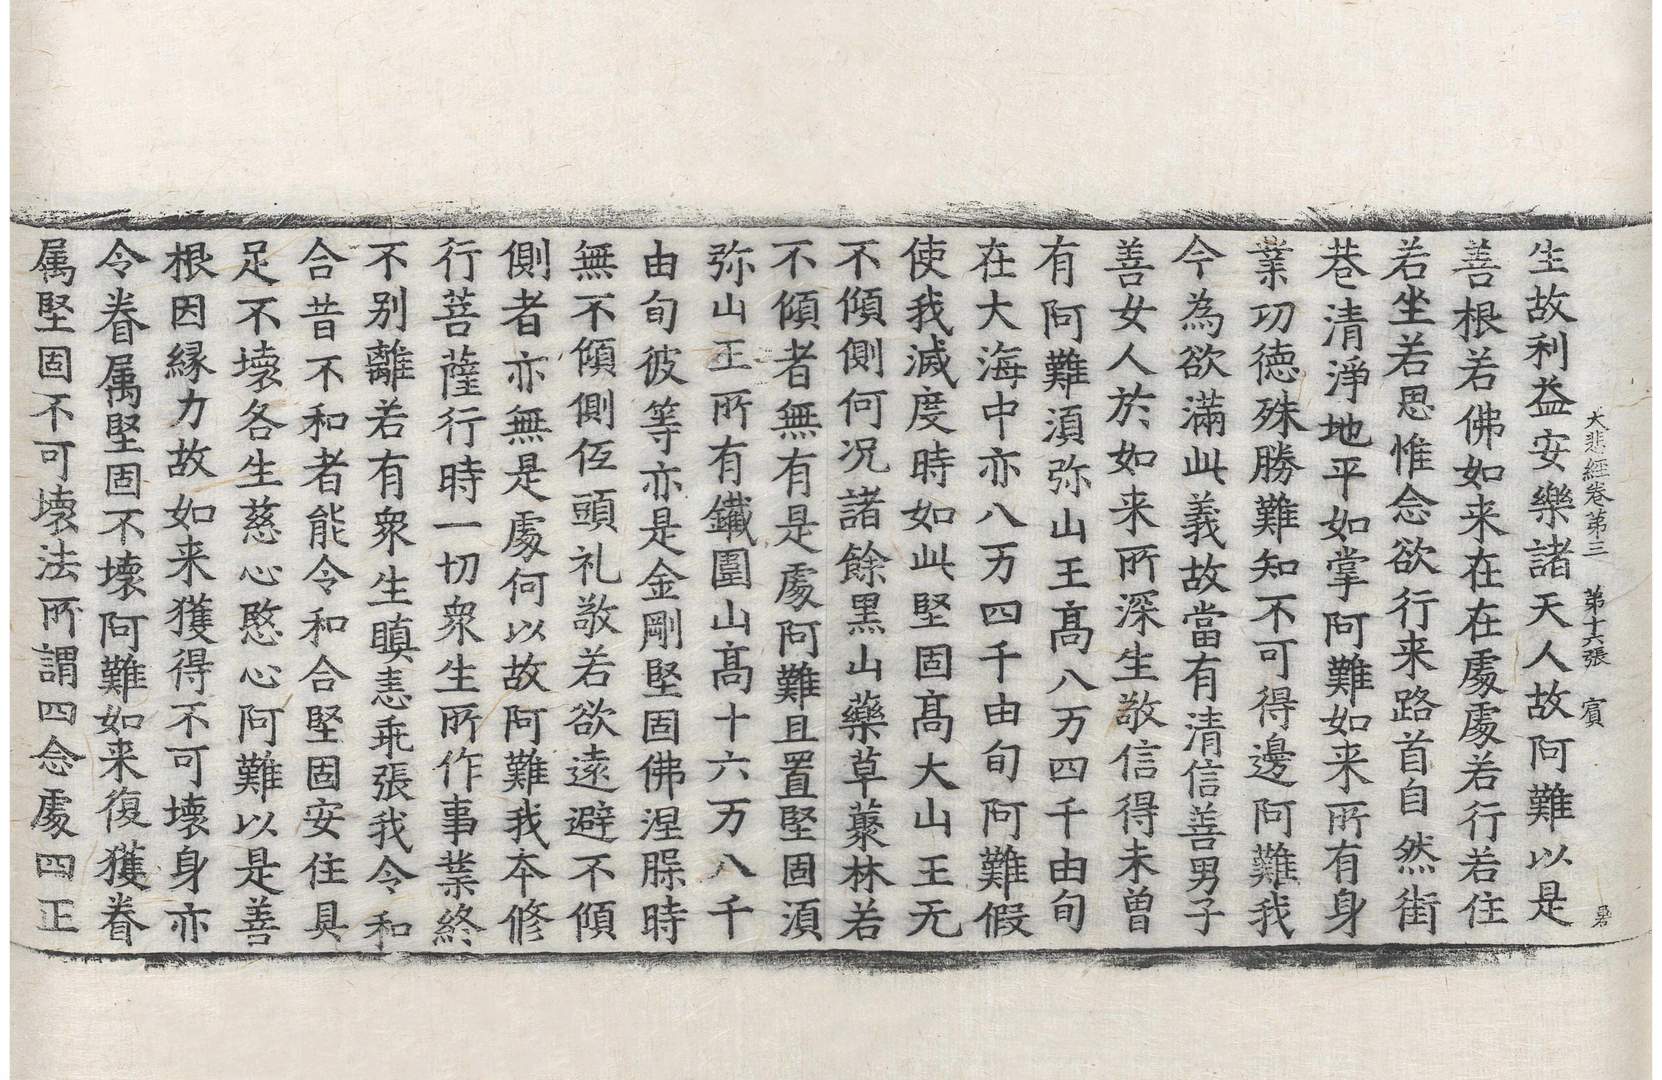 大悲經卷第三 第十六張 賓
生故利益安樂諸天人故阿難以是
善根若佛如来在在處處若行若住
若坐若思惟念欲行来路首自然街
巷清淨地平如掌阿難如来所有身
業功德殊勝難知不可得邊阿難我
今為欲滿此義故當有清信善男子
善女人於如来所深生敬信得未曾
有阿難湏弥山王髙八万四千由旬
在大海中亦八万四千由旬阿難假
使我滅度時如此堅固髙大山王无
不傾側何况諸餘黒山藥草藂林若
不傾者無有是處阿難且置堅固湏
弥山王所有鐵圍山髙十六万八千
由旬彼等亦是金剛堅固佛涅槃時
無不傾側伍頭礼敬若欲遠避不傾
側者亦無是處何以故阿難我夲修
行菩薩行時一切衆生所作事業終
不别離若有衆生瞋恚乖張我令和
合昔不和者能令和合堅固安住具
足不壞各生慈心愍心阿難以是善
根因縁力故如来獲得不可壞身亦
令眷属堅固不壞阿難如来復獲眷
属堅固不可壞法所謂四念處四正